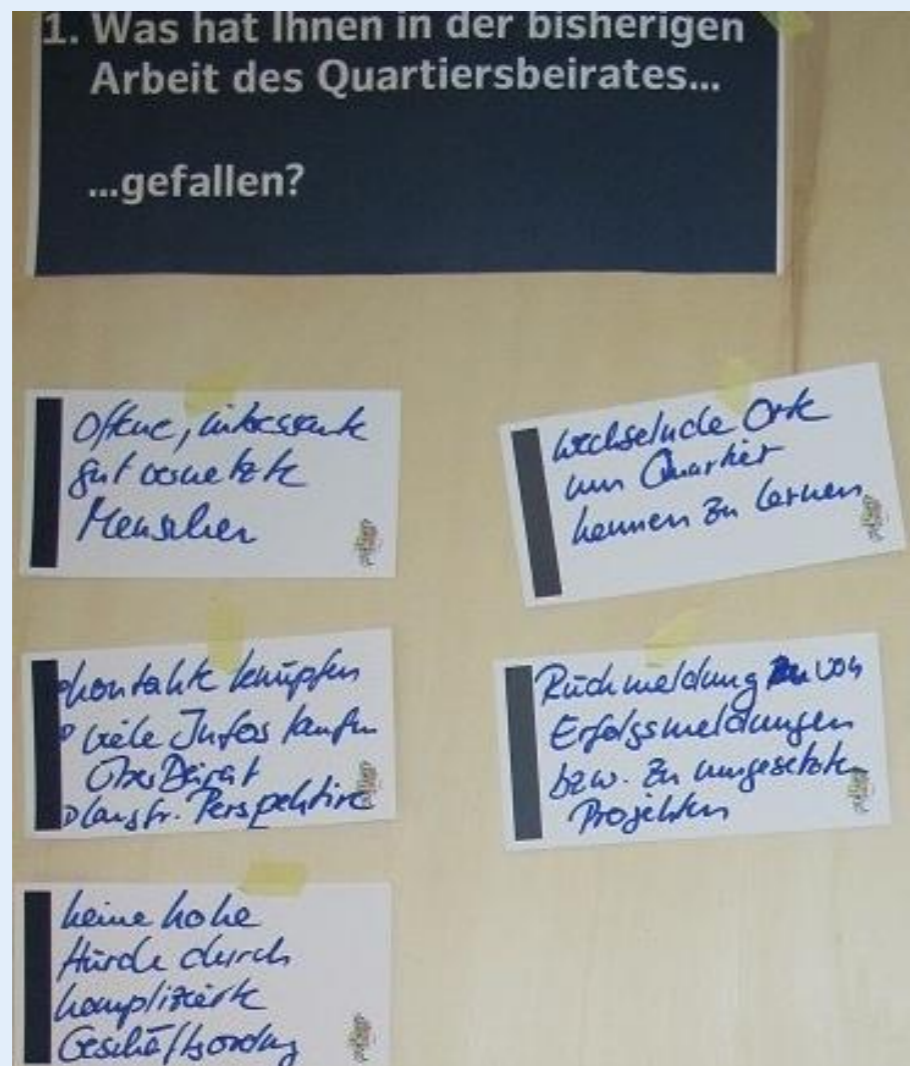 1. Was hat Ihnen in der bisherigen
Arbeit des Quartiersbeirates...
...gefallen?
Offene, interessante
gut vernetzte
Menschen
wechselnde Orte
um Quartier
kennen zu lernen
Kontakte knüpfen
viele Infos laufen
über Beirat
langfr. Perspektive
Rückmeldung von
Erfolgsmeldungen
bzw. zu umgesetzten
Projekten
keine hohe
Hürde durch
komplizierte
Geschäftsordnung